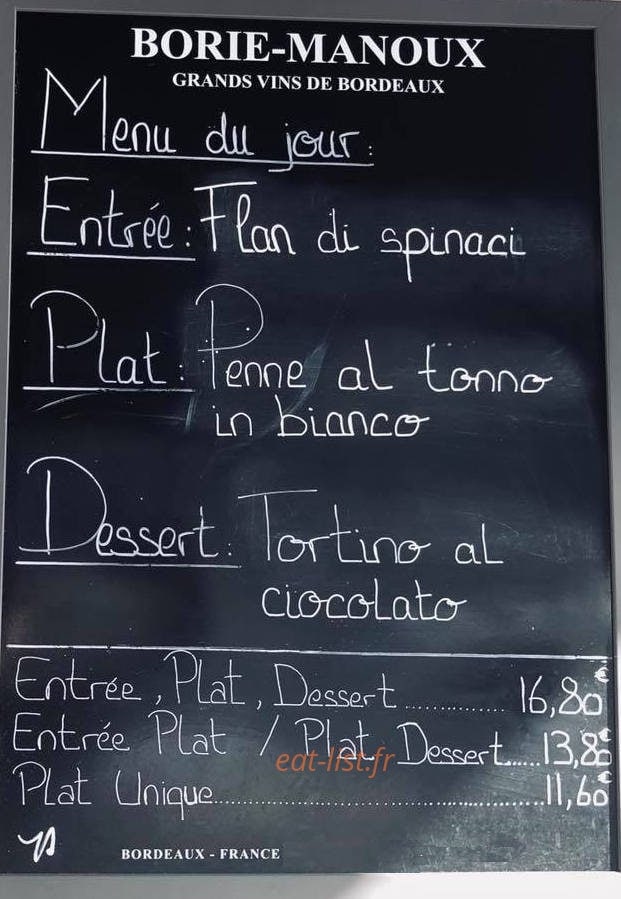 BORIE-MANOUX
GRANDS VINS DE BORDEAUX
Menu du jour:
Entrée: Flan di spinaci
Plat: Penne al tonno
in bianco
Dessert: Tortino al
ciocolato
Entrée, Plat, Dessert.............. 16,80€
Entrée Plat / Plat Dessert.....13,80€
eat-list.fr
Plat Unique..........................................11,60€
BORDEAUX - FRANCE